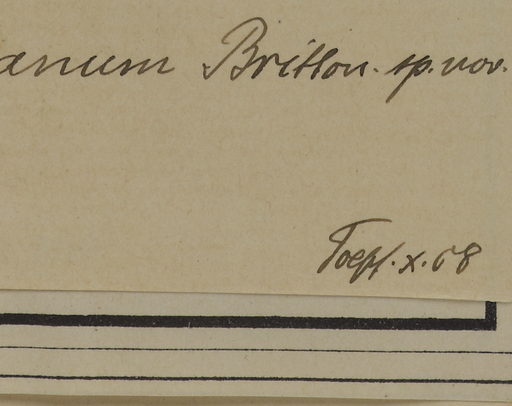 anum Britton. sp. nov.
Toepf. x. 68